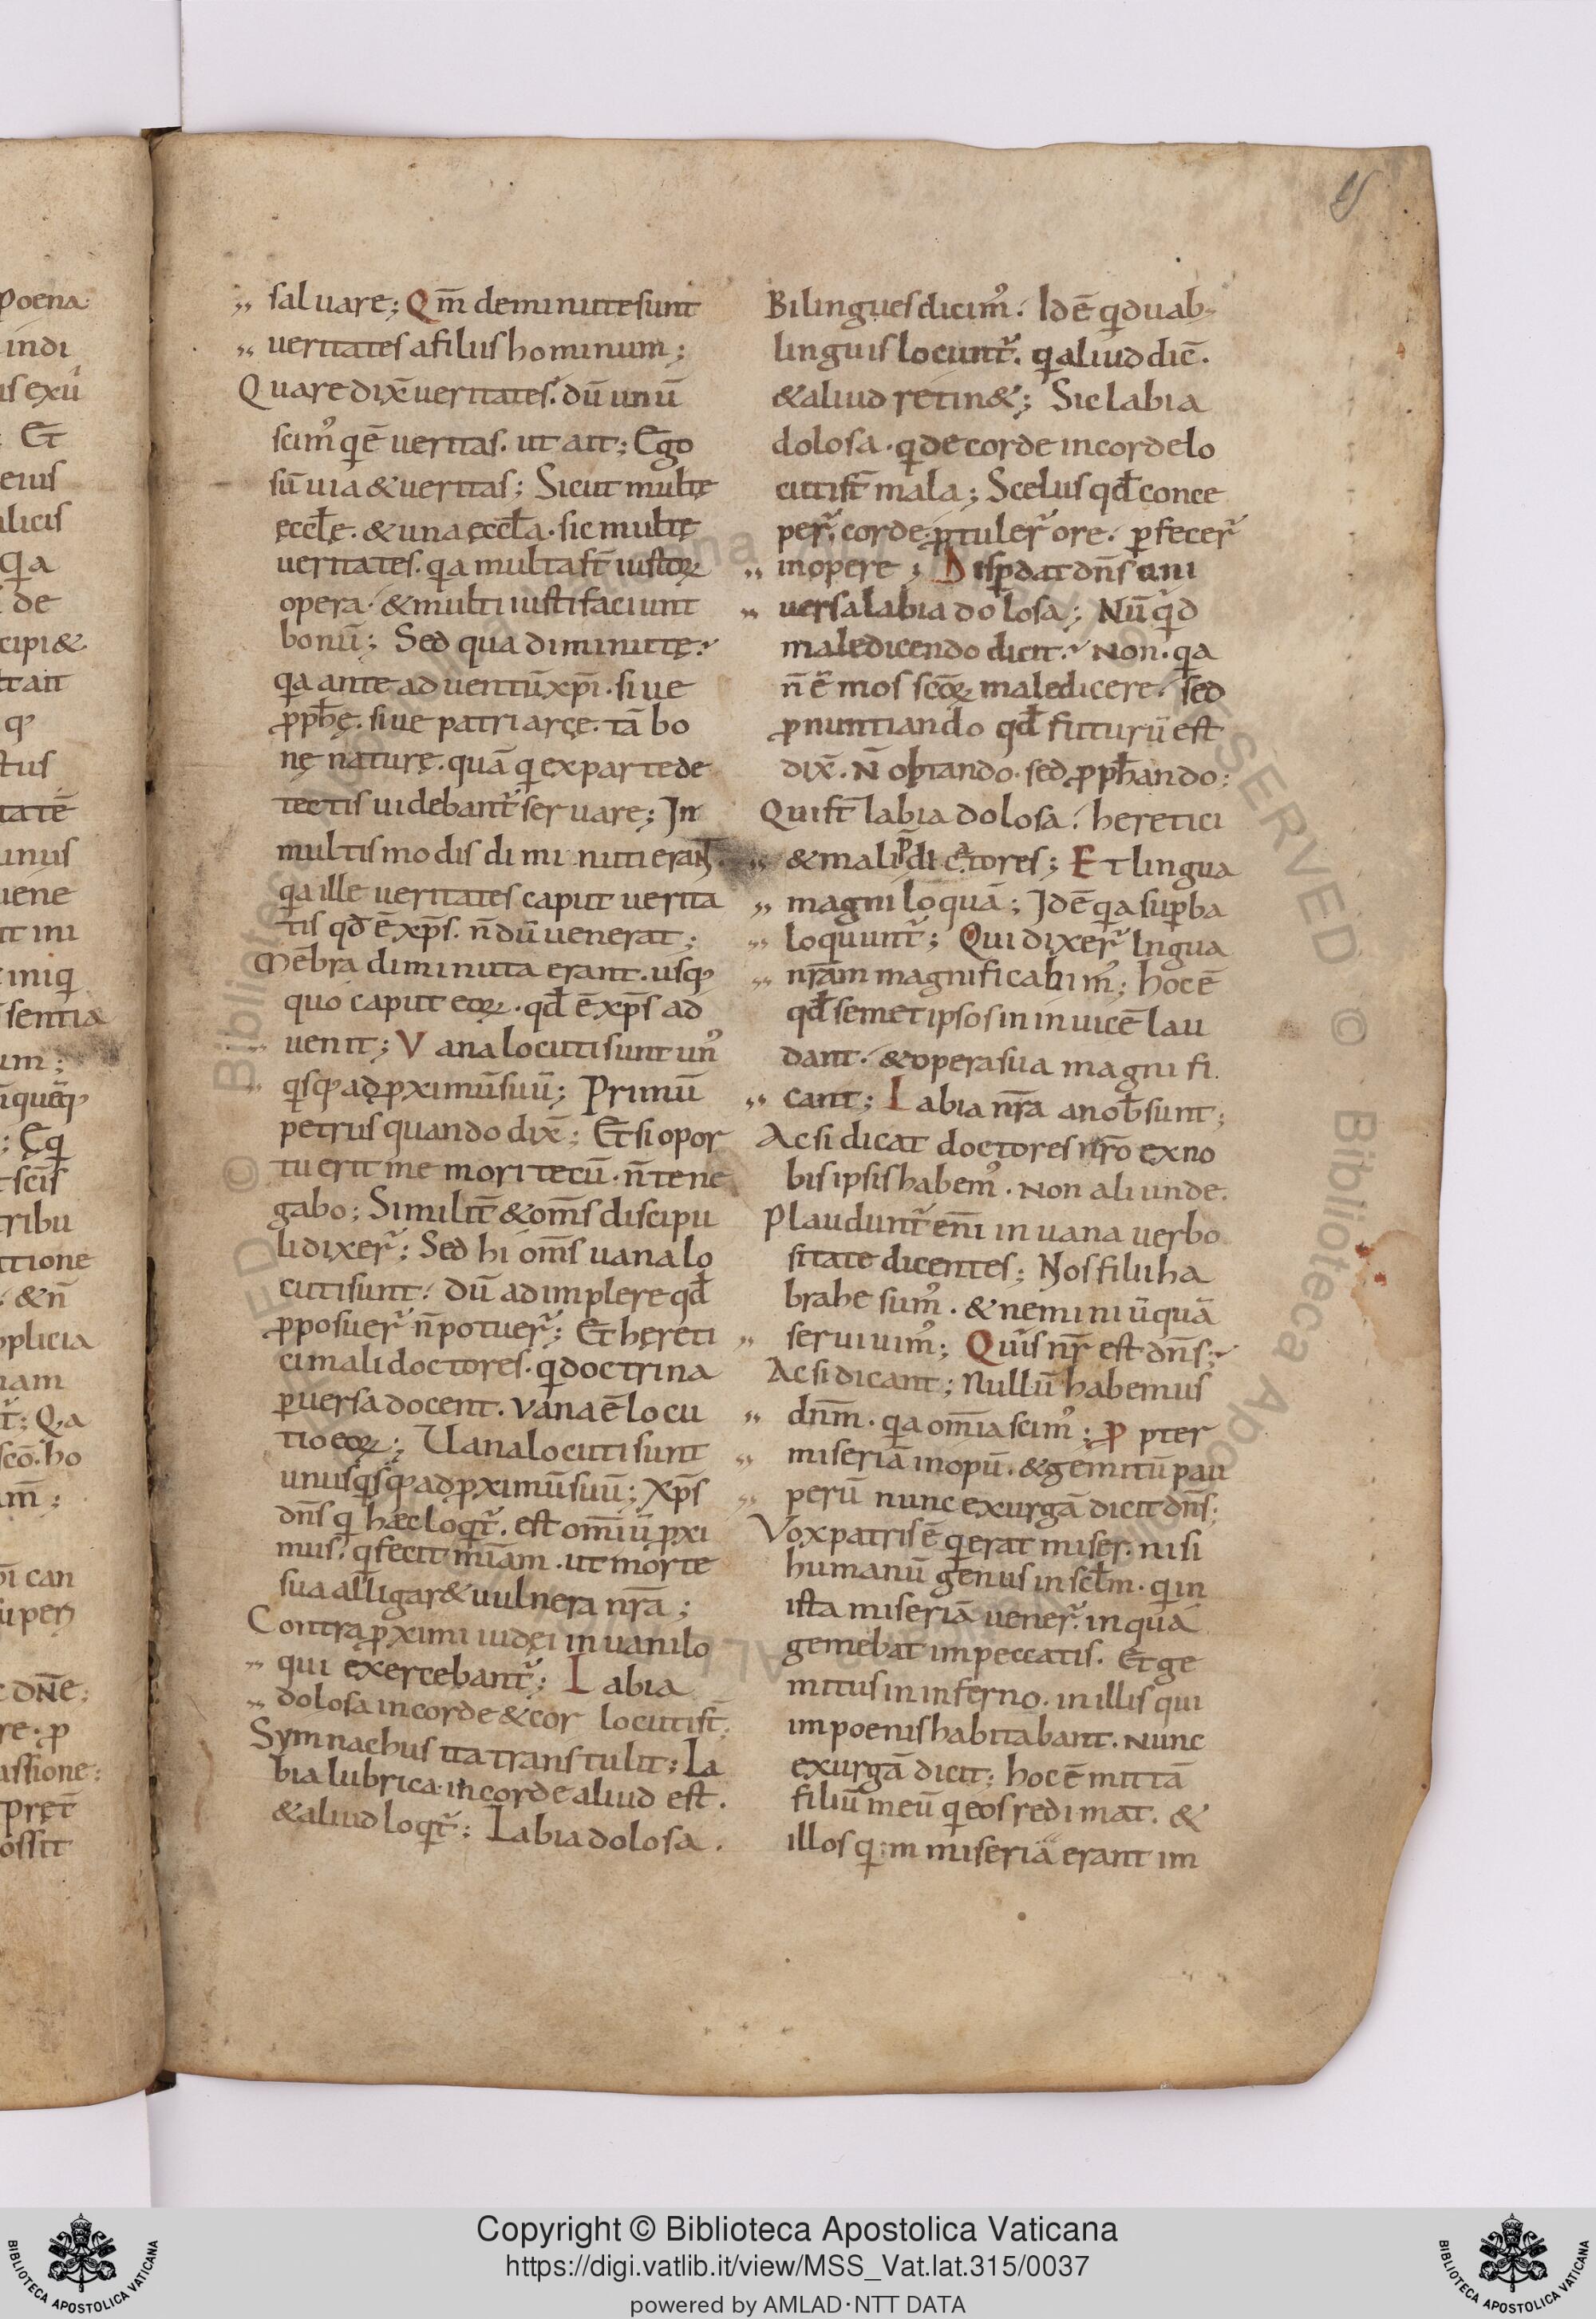 poena
indi
is exū
Et
eius
ilicis
q̣a
de
cipi&
ttait
q;
stus
tatē
inus
uene
it ini
iniq
sentia
um;
; Ęq
scīs
tribu
itione
. &n̄
pplicia
nam
t̄; Q.a
scō. ho
am̄;
ī can
ipen
dn̄e;
re. ꝓ
assione:
pręt̄
ossit
„ saluare; Qm̄ deminute sunt
„ ueritates a filiis hominum;
Quare dix̄ ueritates. dū unū
scim᾿ qui ē ueritas. ut ait; Ego
sū uia & ueritas; Sicut multę
ęccl̄ę. & una ęccl̄a. sic multę
ueritates. qa multa st̄ iustoꝝ
opera. & multi iusti faciunt
bonū; Sed qua diminutę?
qa ante aduentū xp̄i. siue
ꝓph̄ę. siue patriarçe. tā bo
nę naturę. quā qi ex parte de
tectis uidebant᾿ seruare; In
multis modis diminuti erant.
qa ille ueritates caput uerita
tis qd̄ ē xp̄s. n̄dū uenerat;
Mēbra diminuta erant. usq;
quo caput eoꝝ. qd̄ ē xp̄s ad
„ uenit; Vana locuti sunt un᾿
„ qsq; ad ꝓximū suū; Primū
petrus quando dix̄; Et si opor
tuerit me mori tecū. n̄ te ne
gabo; Similit̄ & om̄s discipu
li dixer᾿; Sed hi om̄s uana lo
cuti sunt. dū adimplere qd̄
ꝓposuer᾿ n̄ potuer᾿; Et hęreti
ci mali doctores. qi doctrina
ꝑuersa docent. vana ē locu
tio eoꝝ; Uana locuti sunt
unusqsq; ad ꝓximū suū; Xp̄s
dn̄s qi hæc loqt᾿. est om̄iū ꝓxi
mus. qi fecit mīam. ut morte
sua alligar& uulnera nr̄a;
Contra ꝓximi iudęi in uaniło
„ qui exercebant᾿; Labia
„ dolosa in corde & cor locuti st̄.
Symnachus ita transtulit; La
bia lubrica in corde aliud est.
& aliud loqt᾿; Labia dolosa.
Bilingues dicim᾿. Idē qi duab;
linguis locunt᾿. qi aliud dic̄.
& aliud retin&; Sic labia
dolosa. qi de corde in corde lo
cuti st̄ mala; Scelus qd̄ conce
per᾿ corde. ꝓtuler᾿ ore. ꝑfecer᾿
„ in opere; Disꝑdat dn̄s uni
„ uersa labia dolosa; Nū qd
maledicendo dicit? Non. qa
n̄ ē mos scōꝝ maledicere. sed
ꝓnuntiando qd̄ futurū est
dix̄. N̄ obtando. sed ꝓph̄ando:
Qui st̄ labia dolosa. heretici
„ & mali p̄dicatores; Et lingua
„ magniloquā; Idē qa suꝑba
„ loquunt᾿; Qui dixer᾿ lngua
„ nr̄am magnificabim᾿; hoc ē
qd̄ semetipsos in inuicē lau
dant. & opera sua magnifi
„ cant; Labia nr̄a a nob̄ sunt;
Ac si dicat doctores nr̄o ex no
bis ipsis habem᾿. Non aliunde.
Plaudunt᾿ eni̅ in uana uerbo
sitate dicentes; Nos filii ha
brahe sum᾿. & nemini ūquā
„ seruiuim᾿; Quis nr̄ est dn̄s;
Ac si dicant; Nullū habemus
„ dn̄m. qa om̄ia scim᾿; ꝓpter
„ miseriā inopū. & gemitū pau
„ perū nunc exurgā dicit dn̄s;
Vox patris ē qi erat miser. nisi
humanū genus in scl̄m. qi in
ista miseriā uener᾿. in quā
gemebat im peccatis. Et ge
mitus in inferno. in illis qui
im poenis habitabant. Nunc
exurgā dicit; hoc ē mittā
filiū meū qi eos redimat. &
illos qi in miseriā erant im
Copyright © Biblioteca Apostolica Vaticana
https://digi.vatlib.it/view/MSS_Vat.lat.315/0037
powered by AMLAD·NTT DATA
BIBLIOTECA APOSTOLICA VATICANA
BIBLIOTECA APOSTOLICA VATICANA